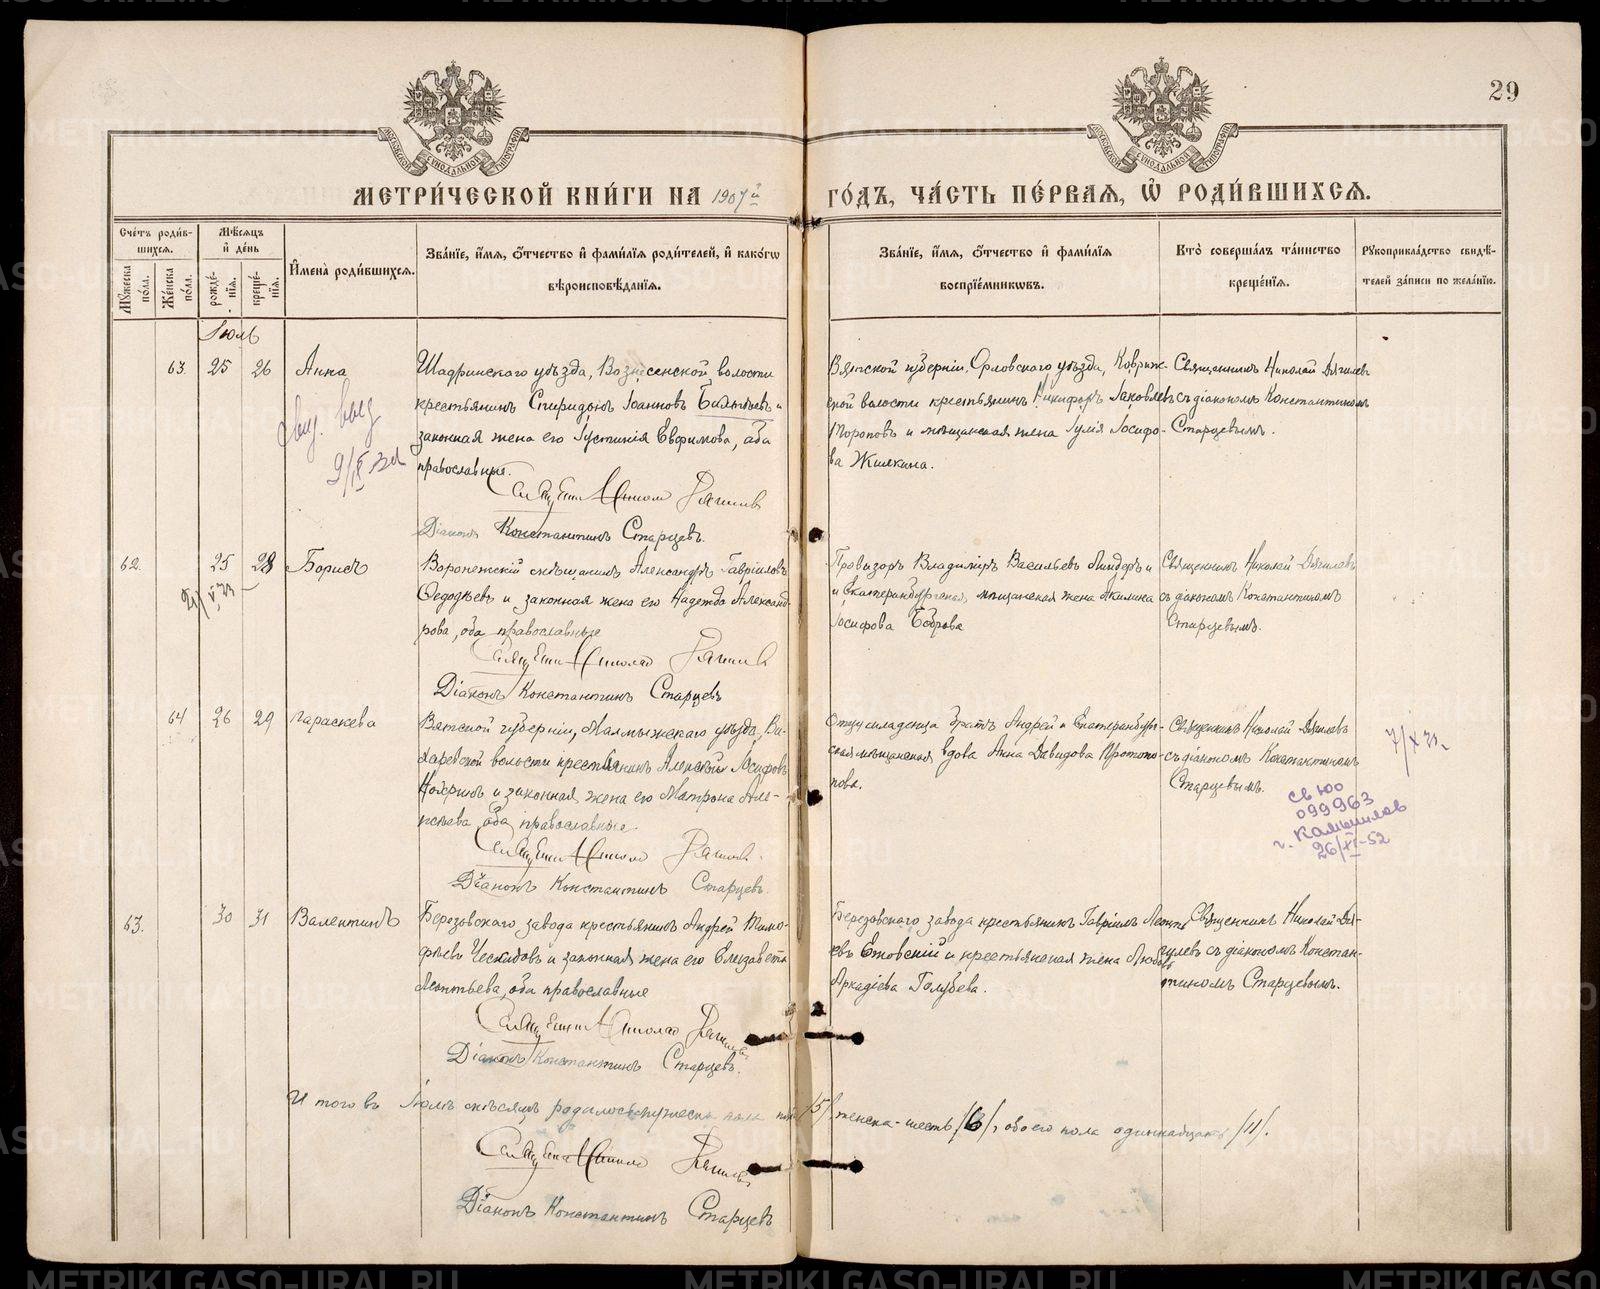 29
МЕТРИ́ЧЕСКОЙ КНИ́ГИ НА 1907й ГО́ДЪ, ЧА́СТЬ ПЕ́РВАЯ, Ѡ РОДИ́ВШИХСѦ.
Сче́тъ роди́вшихсѧ.
Мꙋ́жеска по́ла.
Же́нска по́ла.
Мѣ́сѧцъ и҆ де́нь
рожде́нїѧ.
креще́нїѧ.
И҆мена̀ роди́вшихсѧ.
Зва́нїе, и҆́мѧ, ѻ҆́тчество и҆ фами́лїѧ роди́телей, и҆ како́гѡ
вѣроисповѣ́данїѧ.
Зва́нїе, и҆́мѧ, ѻ҆́тчество и҆ фами́лїѧ
воспрїе́мникѡвъ.
Кто̀ соверша́лъ та́инство
креще́нїѧ.
Рꙋкоприкла́дство свидѣ́-
телей за́писи по жела́нїю.
Іюль
63. 25 26 Анна
Шадринскаго уѣзда, Вознесенской волости
крестьянинъ Спиридонъ Іоанновъ и
законная жена его Іустинія Евфимова, оба
православные.
Священникъ Николай Дягилевъ
Діаконъ Константинъ Старцевъ.
Вятской губерніи, Орловскаго уѣзда,
ской волости крестьянинъ Никифоръ Іаковлевъ
Тороповъ и мѣщанская жена Іулія Іосифо-
ва Жилкина.
Священникъ Николай Дягилевъ
съ діакономъ Константиномъ
Старцевымъ.
62. 25 28 Борисъ
Воронежскій мѣщанинъ Александръ Гавріиловъ
и законная жена его Надежда Александ-
рова, оба православные
Священникъ Николай Дягилевъ
Діаконъ Константинъ Старцевъ
Провизоръ Владиміръ Васильевъ Линдеръ и
и Екатеринбургская мѣщанская жена Акилина
Іосифова Боброва
Священникъ Николай Дягилевъ
съ діакономъ Константиномъ
Старцевымъ.
64 26 29 Параскева
Вятской губерніи, Малмыжскаго уѣзда,
волости крестьянинъ Алексѣй Іосифовъ
и законная жена его Матрона Але-
ксѣева, оба православные
Священникъ Николай Дягилевъ.
Діаконъ Константинъ Старцевъ.
Отцу младенца братъ Андрей и Екатеринбург-
ская мѣщанская вдова Анна Давидова Протопо-
пова.
Священникъ Николай Дягилевъ
съ діакономъ Константиномъ
Старцевымъ.
св ЮО
099963
г. Камышлов
26/XI-52
63. 30 31 Валентинъ
Березовскаго завода крестьянинъ Андрей Тимо-
фѣевъ Ческидовъ и законная жена его Елизавета
Леонтьева, оба православные
Священникъ Николай Дягилевъ
Діаконъ Константинъ Старцевъ.
Березовскаго завода крестьянинъ Гавріилъ Леонть-
евъ и крестьянская жена Любовь
Аркадіева Голубева.
Священникъ Николай Дя-
гилевъ съ діакономъ Констан-
тиномъ Старцевымъ.
Итого въ Іюлѣ мѣсяцѣ родилось мужеска пола пять /5/, женска - шесть /6/, обоего пола одиннадцать /11/.
Священникъ Николай Дягилевъ
Діаконъ Константинъ Старцевъ
METRIKI.GASO-URAL.RU